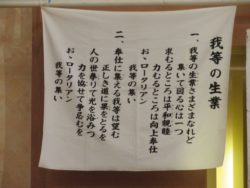 我等の生業
一、我等の生業さまざまなれど
集いて図る心は一つ
求むるところは平和親睦
力むるところは向上奉仕
お、ロータリアン
我等の集い
二、奉仕に集える我等は望む
正しき道に果をとるを
人の世挙りて光を浴みつ
力を協せて争忌むを
お、ロータリアン
我等の集い